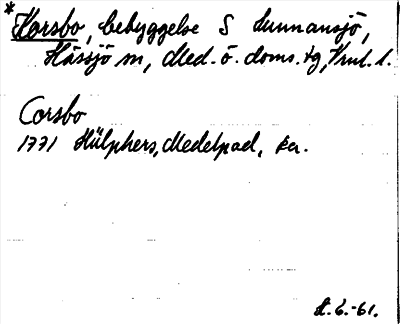 *Korsbo, bebyggelse S Sunnansjö,
Hässjö sn, Med. ö. doms. tg, Vrnl. l.
Corsbo
1771 Hülphers, Medelpad, ka.
St. 6.-61.